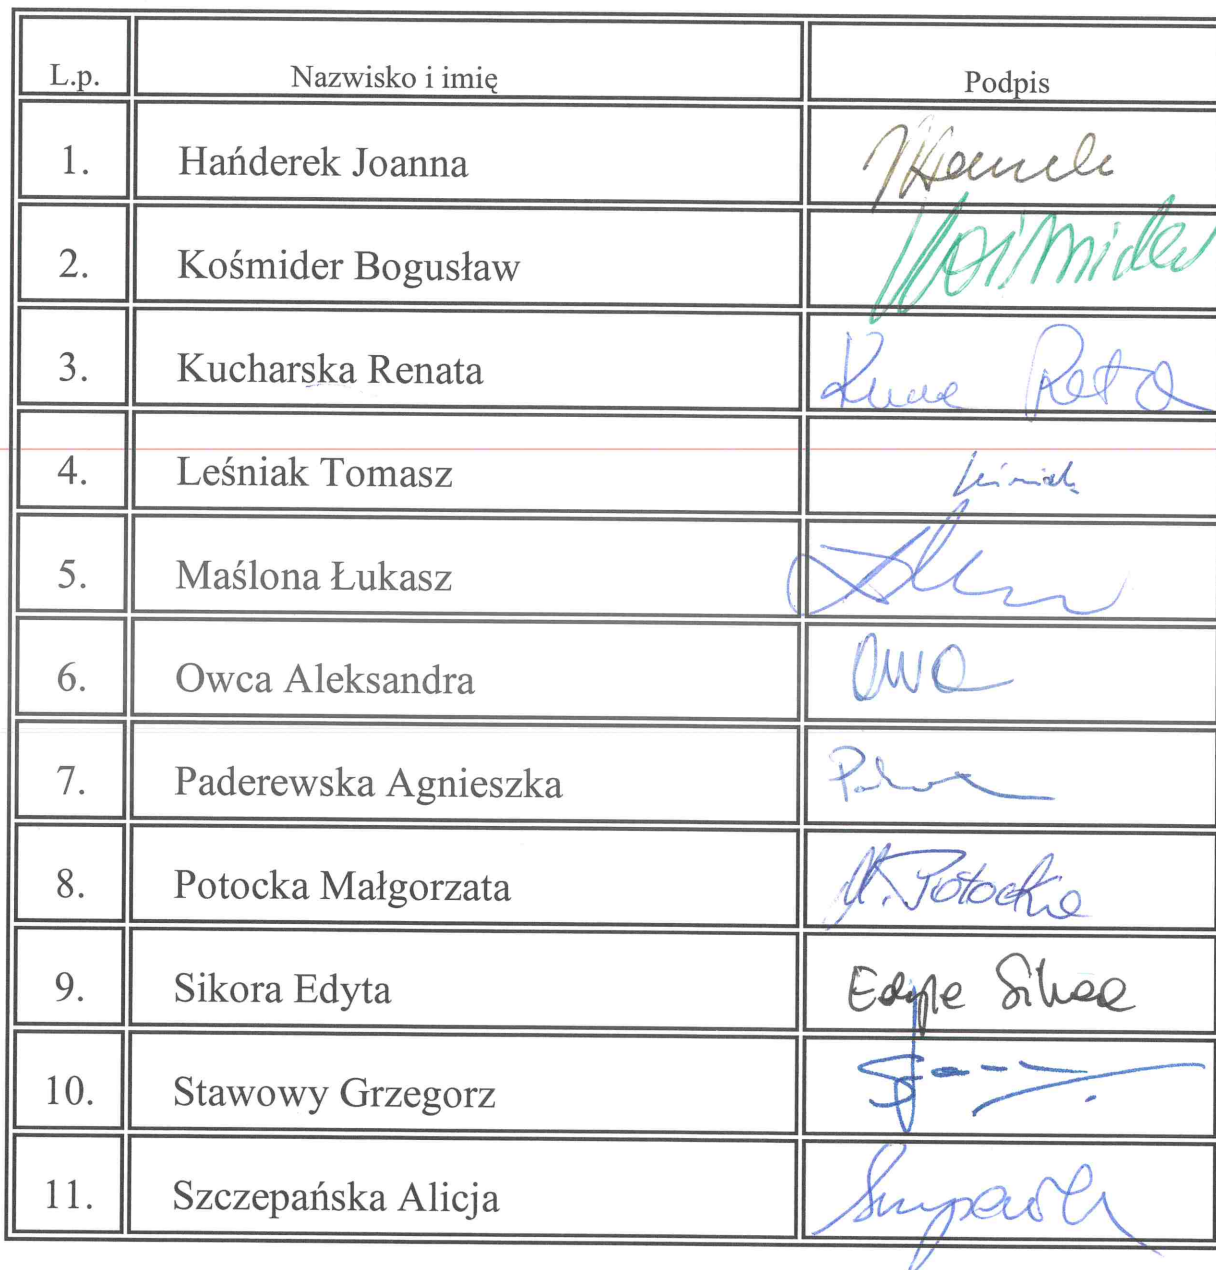 L.p. Nazwisko i imię Podpis
1. Hańderek Joanna
2. Kośmider Bogusław Kośmider
3. Kucharska Renata
4. Leśniak Tomasz Leśniak
5. Maślona Łukasz
6. Owca Aleksandra
7. Paderewska Agnieszka
8. Potocka Małgorzata M. Potocka
9. Sikora Edyta Edyta Sikora
10. Stawowy Grzegorz
11. Szczepańska Alicja